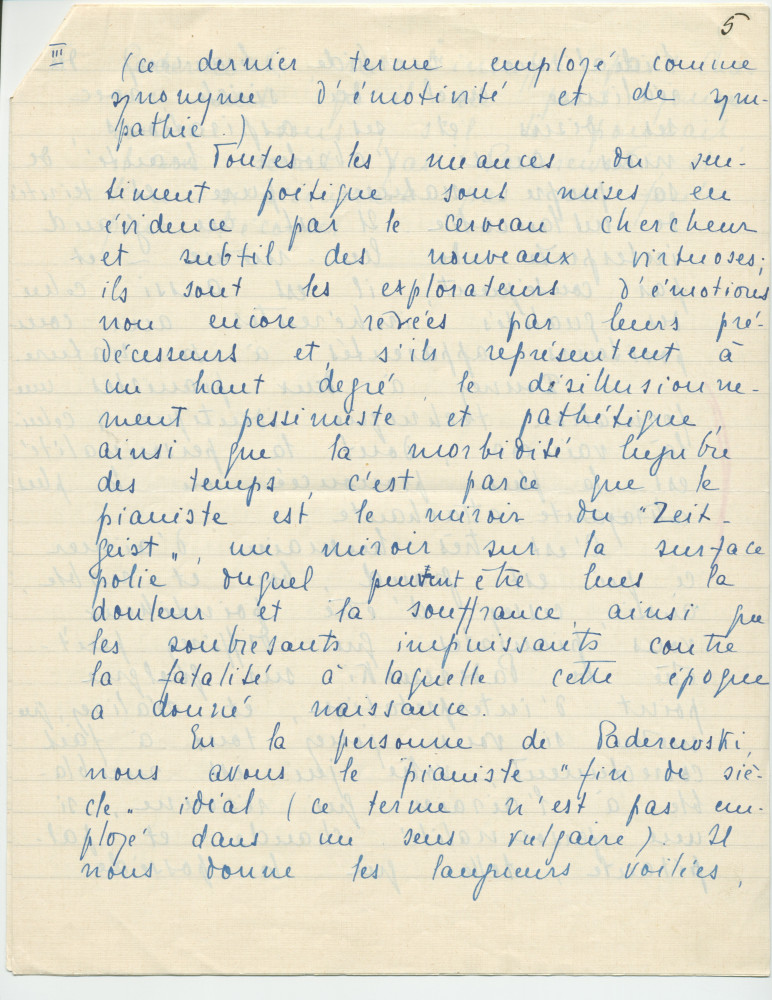 5
III
(ce dernier terme employé comme
synonyme d'émotivité et de sym-
pathie)
Toutes les nuances du sen-
timent poétique sont mises en
évidence par le cerveau chercheur
et subtil des nouveaux virtuoses;
ils sont les explorateurs d'émotions
non encore rêvées par leurs pré-
décesseurs et, s'ils représentent à
un haut degré, le désillusionne-
ment pessimiste et pathétique,
ainsi que la morbidité lugubre
des temps, c'est parce que le
pianiste est le miroir du "Zeit-
geist", un miroir sur la surface
polie duquel peuvent être lues la
douleur et la souffrance, ainsi que
les soubresants impuissants contre
la fatalité à laquelle cette époque
a donné naissance.
En la personne de Paderewski,
nous avons le pianiste "fin de siè-
cle" idéal (ce terme n'est pas em-
ployé dans un sens vulgaire). Il
nous donne les langueurs voilées,